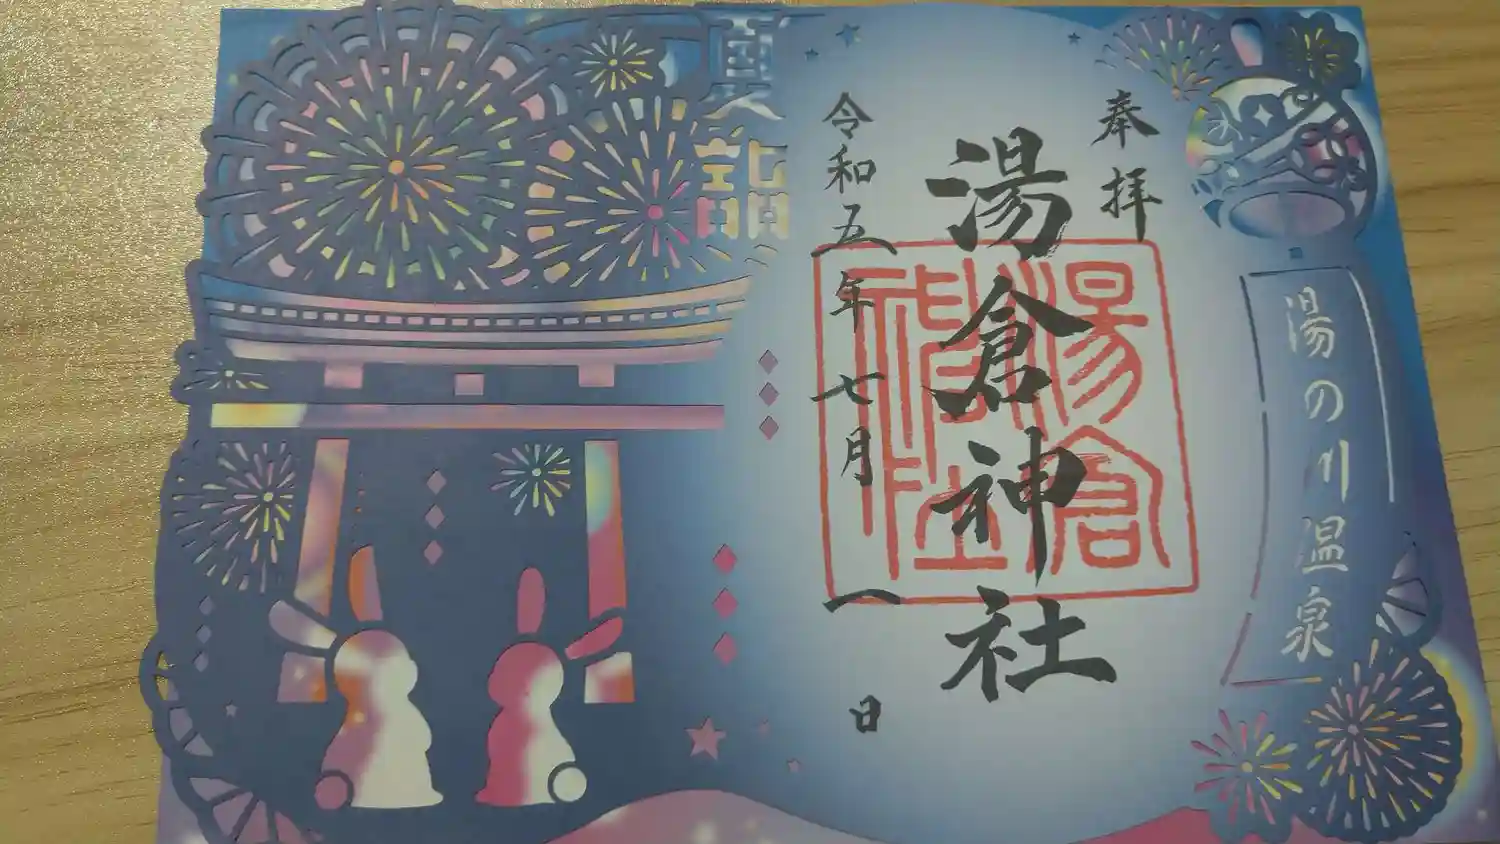 奉拝
湯倉神社
湯倉神社
令和五年七月一日
湯の川温泉
夏詣